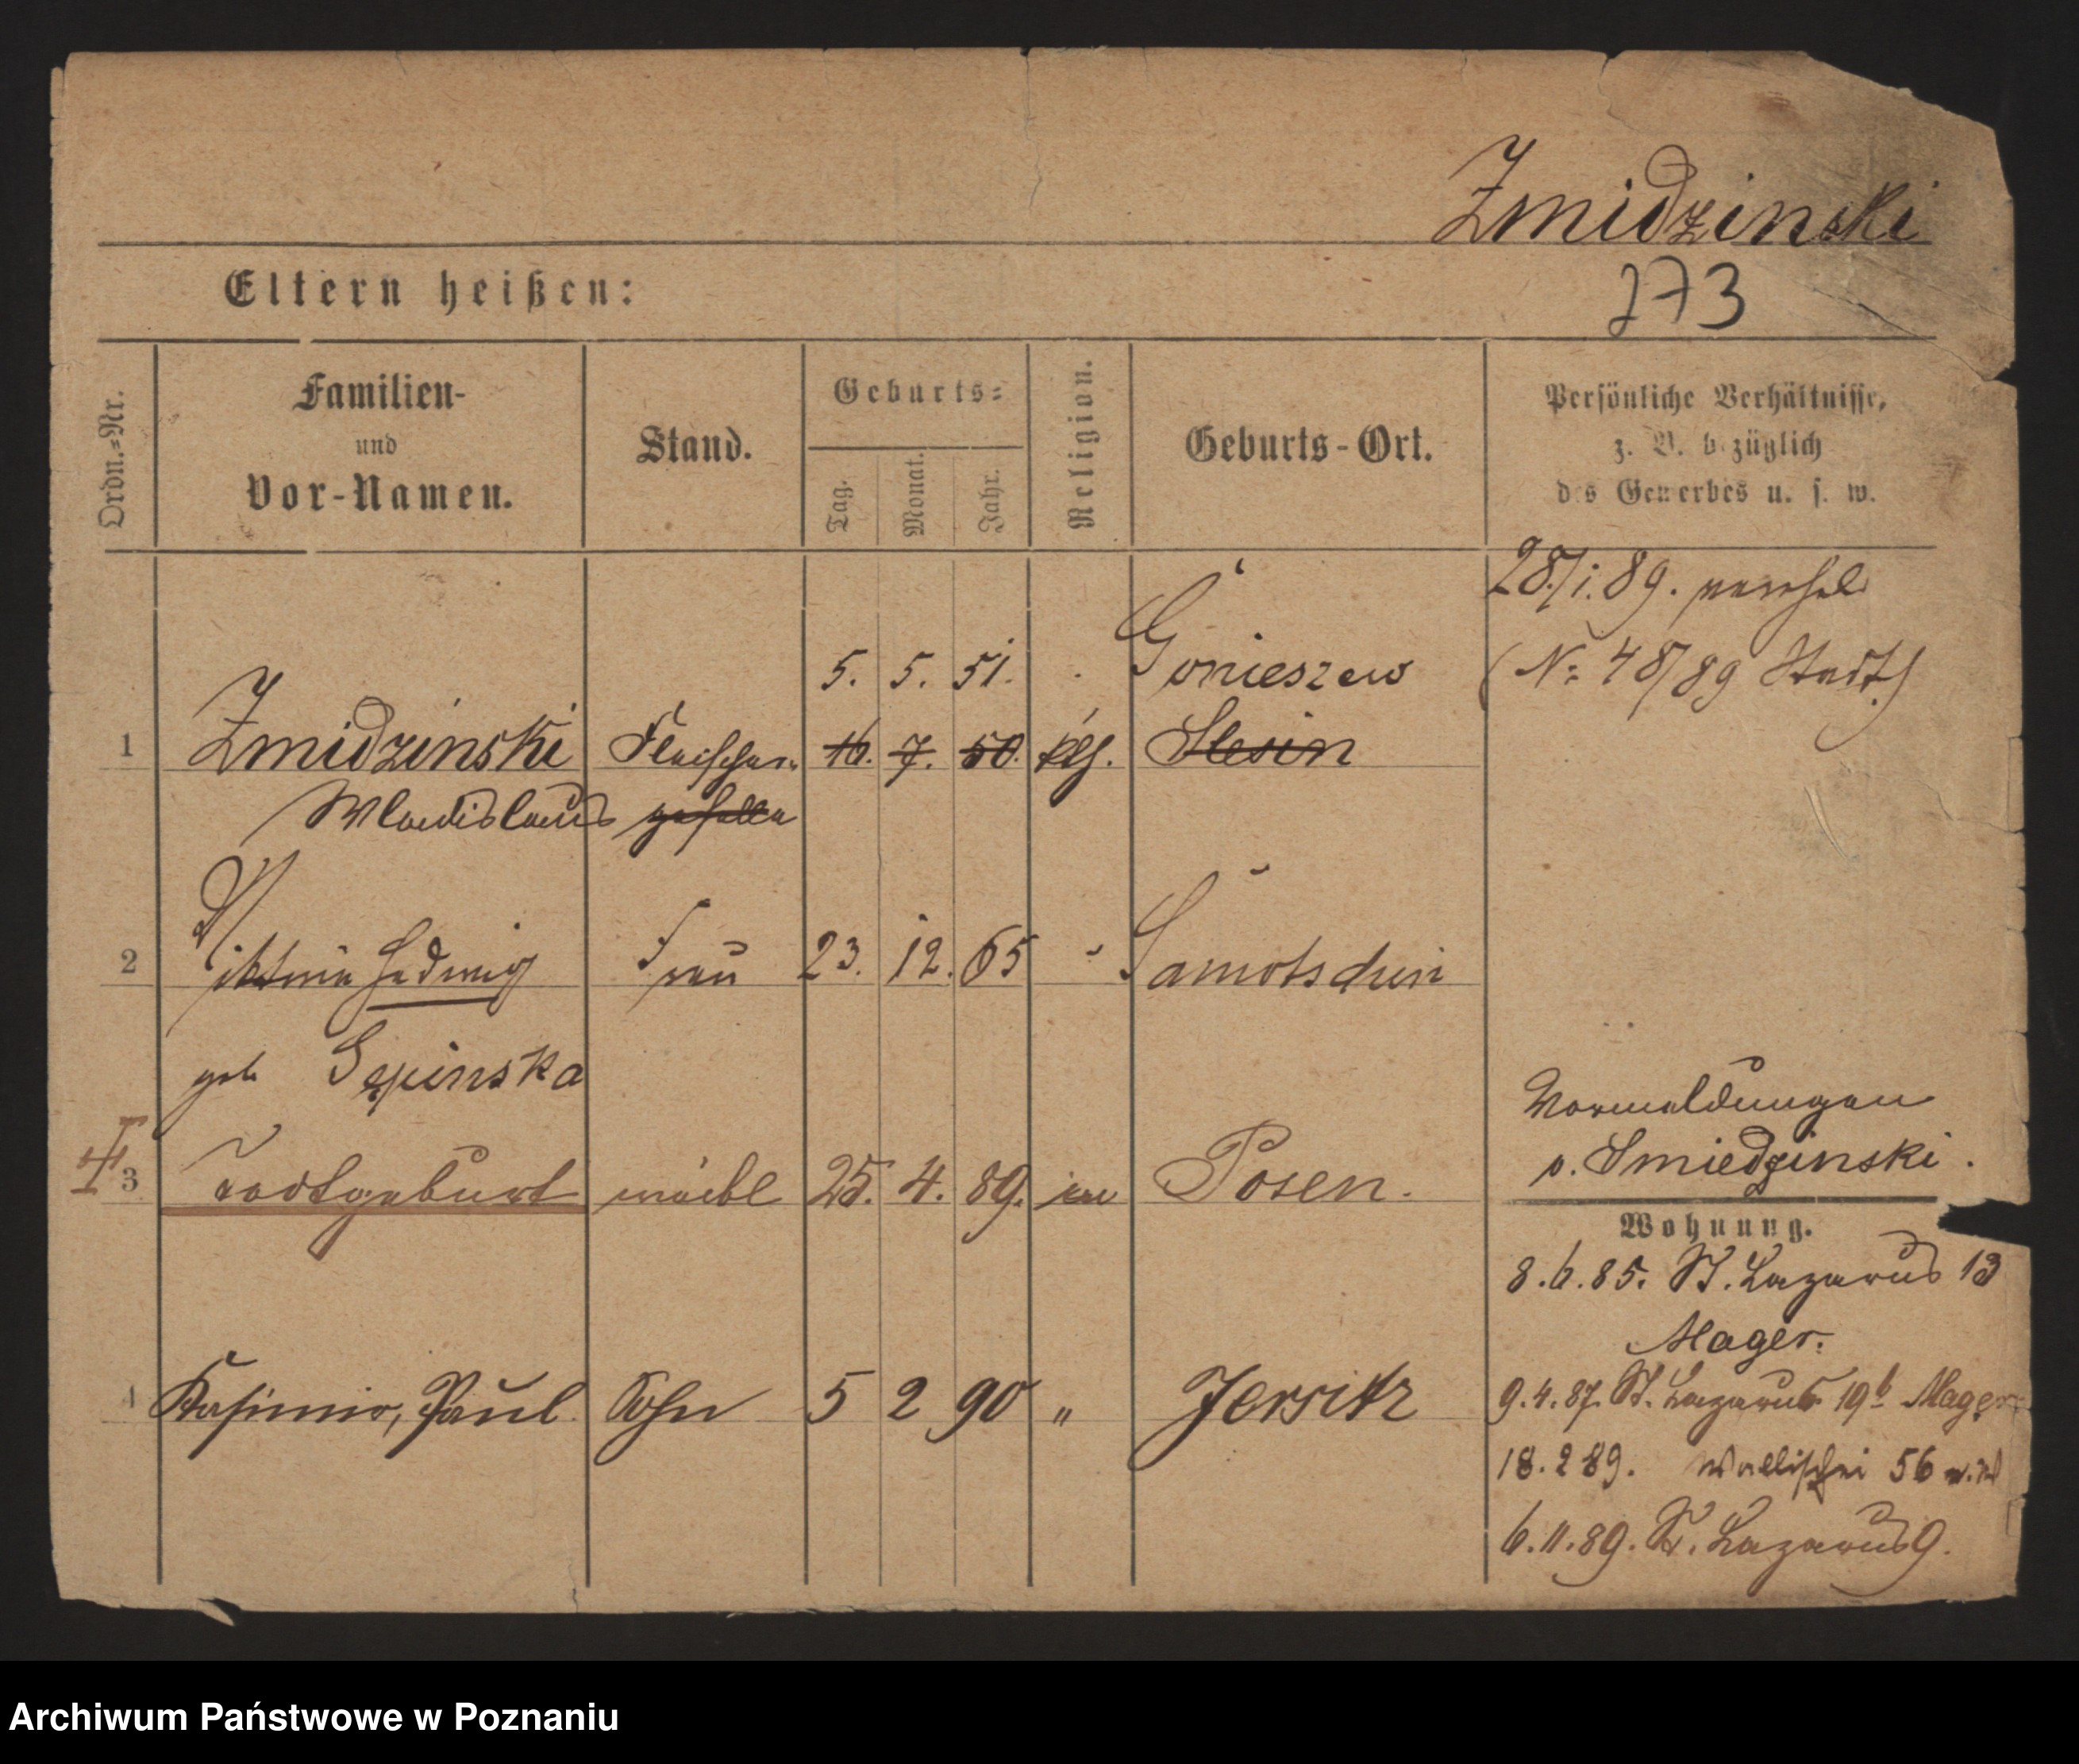 Zmidzinski
273
Eltern heißen:
Ordn.-Nr.
Familien-
und
Vor-Namen.
Stand.
Geburts-
Tag.
Monat.
Jahr.
Religion.
Geburts-Ort.
Persönliche Verhältnisse,
z. B. bezüglich
des Gewerbes u. s. w.
28./1.89. verehel
(No. 48/89 Stadt)
5. 5. 51. Gonieszewo
1 Zmidzinski Fleischer 16. 7. 50. kth. Slesin
Wladislaus geselle
2 Viktoria Hedwig Frau 23. 12. 65 " Samotschin
geb Sępinska
Vormeldungen
s. Smiedzinski.
3 Todtgeburt weibl 25. 4. 89. Posen.
Wohnung.
8.6.85. St. Lazarus 13
Mager.
4 Kasimir, Paul Sohn 5 2 90 " Jersitz
9.4.87. St. Lazarus 19b Mager
18.2 89. Wallischei 56
6.11.89. St. Lazarus 9.
Archiwum Państwowe w Poznaniu